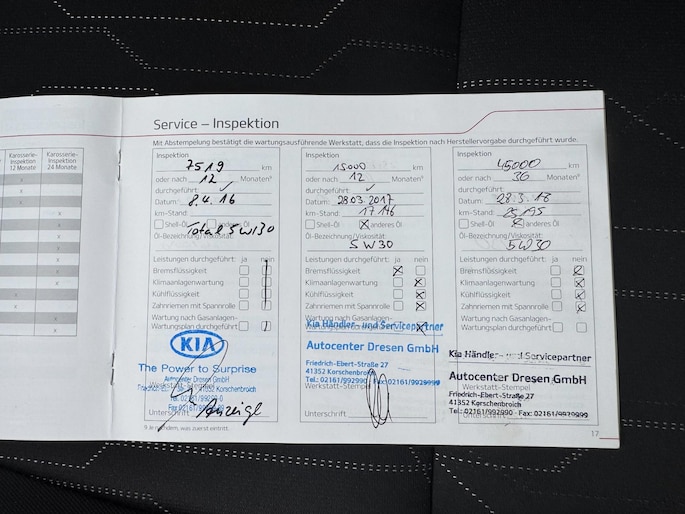 Service – Inspektion
Mit Abstempelung bestätigt die wartungsausführende Werkstatt, dass die Inspektion nach Herstellervorgabe durchgeführt wurde.
Karosserie-Inspektion 12 Monate
Karosserie-Inspektion 24 Monate
Inspektion
7519 km
oder nach 12 Monaten⁹
durchgeführt: ✓
Datum: 8.4.16
km-Stand:
Shell-Öl anderes Öl
Total 5W30
Öl-Bezeichnung/Viskosität:
Leistungen durchgeführt: ja nein
Bremsflüssigkeit
Klimaanlagenwartung
Kühlflüssigkeit
Zahnriemen mit Spannrolle
Wartung nach Gasanlagen-
Wartungsplan durchgeführt
KIA
The Power to Surprise
Autocenter Dresen GmbH
41352 Korschenbroich
Tel. 02161/99299-0
Werkstatt-Stempel
Unterschrift
Inspektion
15000 km
oder nach 12 Monaten⁹
durchgeführt: ✓
Datum: 28.03.2017
km-Stand: 17176
Shell-Öl x anderes Öl
Öl-Bezeichnung/Viskosität:
5W30
Leistungen durchgeführt: ja nein
Bremsflüssigkeit x
Klimaanlagenwartung x
Kühlflüssigkeit x
Zahnriemen mit Spannrolle x
Wartung nach Gasanlagen-
Kia Händler- und Servicepartner
Autocenter Dresen GmbH
Friedrich-Ebert-Straße 27
41352 Korschenbroich
Tel.: 02161/992990 · Fax: 02161/9929999
Werkstatt-Stempel
Unterschrift
Inspektion
45000 km
oder nach 36 Monaten⁹
durchgeführt:
Datum: 28.3.18
km-Stand: 25195
Shell-Öl x anderes Öl
Öl-Bezeichnung/Viskosität:
5W30
Leistungen durchgeführt: ja nein
Bremsflüssigkeit x
Klimaanlagenwartung x
Kühlflüssigkeit x
Zahnriemen mit Spannrolle x
Wartung nach Gasanlagen-
Wartungsplan durchgeführt
Kia Händler- und Servicepartner
Autocenter Dresen GmbH
Friedrich-Ebert-Straße 27
41352 Korschenbroich
Tel.: 02161/992990 · Fax: 02161/9929999
Unterschrift
9 Je nachdem, was zuerst eintritt.
17